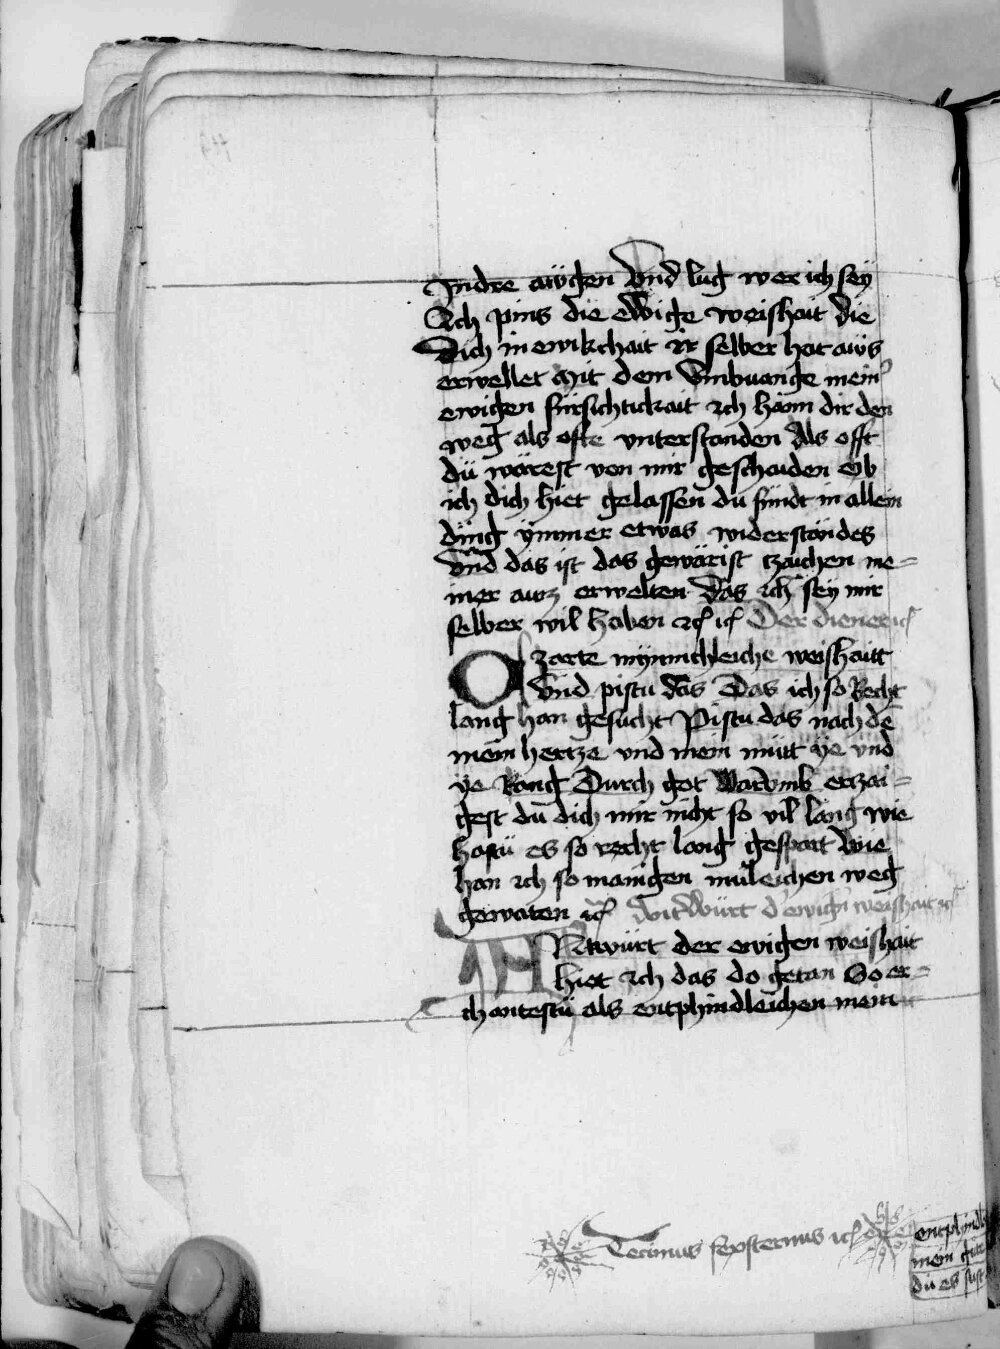 Indre aügen vnd lug wer ich seÿ
Ich pins die ewige weishait die
dich in ewikchait ir selber hat aüs
erwellet mit dem vmbuange mein
ewigen fürsichtickait ich hänn dir den
weg als offte vnterstanden Als offt
dü wärest von mir geschaiden ob
ich dich hiet gelassen dü findt in allen
ding ÿmmer etwas widerstandes
vnd das ist das gewärist tzaichen me=
iner aüz erwelten das ich sey mir
selber wil haben etc etc Der diener etc
O zarte mÿnnichleiche weishaitt
vnd pistu das Das ich so Recht
lang han gesucht Pistu das nach de
mein hertze vnd mein mütt ÿe vnd
ÿe Rang Durch got Warvmb erzai=
gest dü dich mir nicht so vil lang wie
hastü es so recht lang gespart wie
han ich so manigen müleichen weg
gewaten etc Antwürt d' ewign weishait etc
Antwürt der ewigen weishait
hiet ich das do getan So er=
chantestü als entphindleichen mein
Decimus sexsternus etc
entphindl
mein
dü es